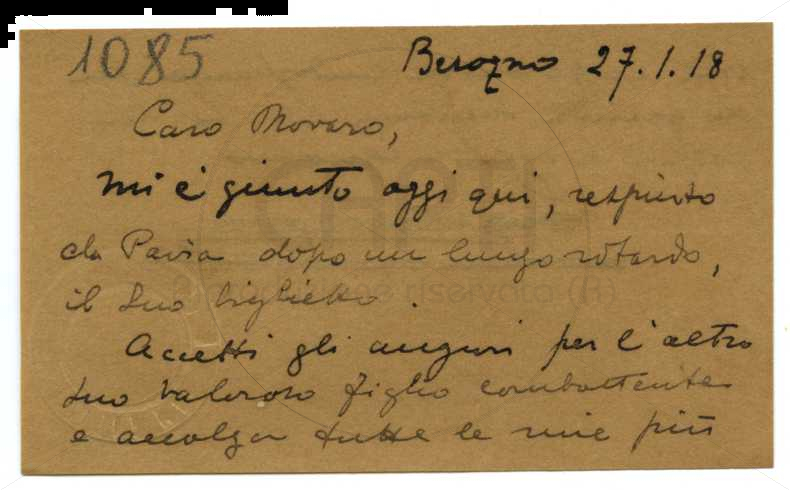 1085
Beregno 27.1.18
Caro Novaro,
mi è giunto oggi qui, respinto
da Pavia dopo un lungo ritardo,
il suo biglietto.
Accetti gli auguri per l'altro
suo valoroso figlio combattente
e accolga tutte le mie più